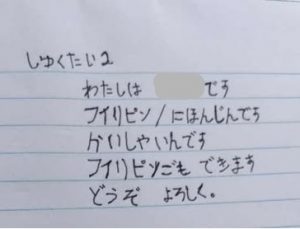 しゅくたい2
わたしは です
フイリピン/にほんじんです
かいしゃいんです
フイリピンごも できます
どうぞ よろしく。